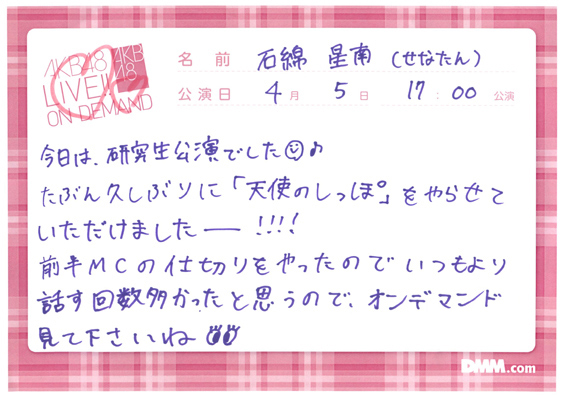 AKB48
LIVE!!
ON DEMAND
AKB
48
名前 石綿 星南 (せなたん)
公演日 4月 5日 17:00 公演
今日は、研究生公演でした☺♪
たぶん久しぶりに「天使のしっぽ」をやらせて
いただけましたー!!!!
前半MCの仕切りをやったのでいつもより
話す回数多かったと思うので、オンデマンド
見て下さいね
DMM.com